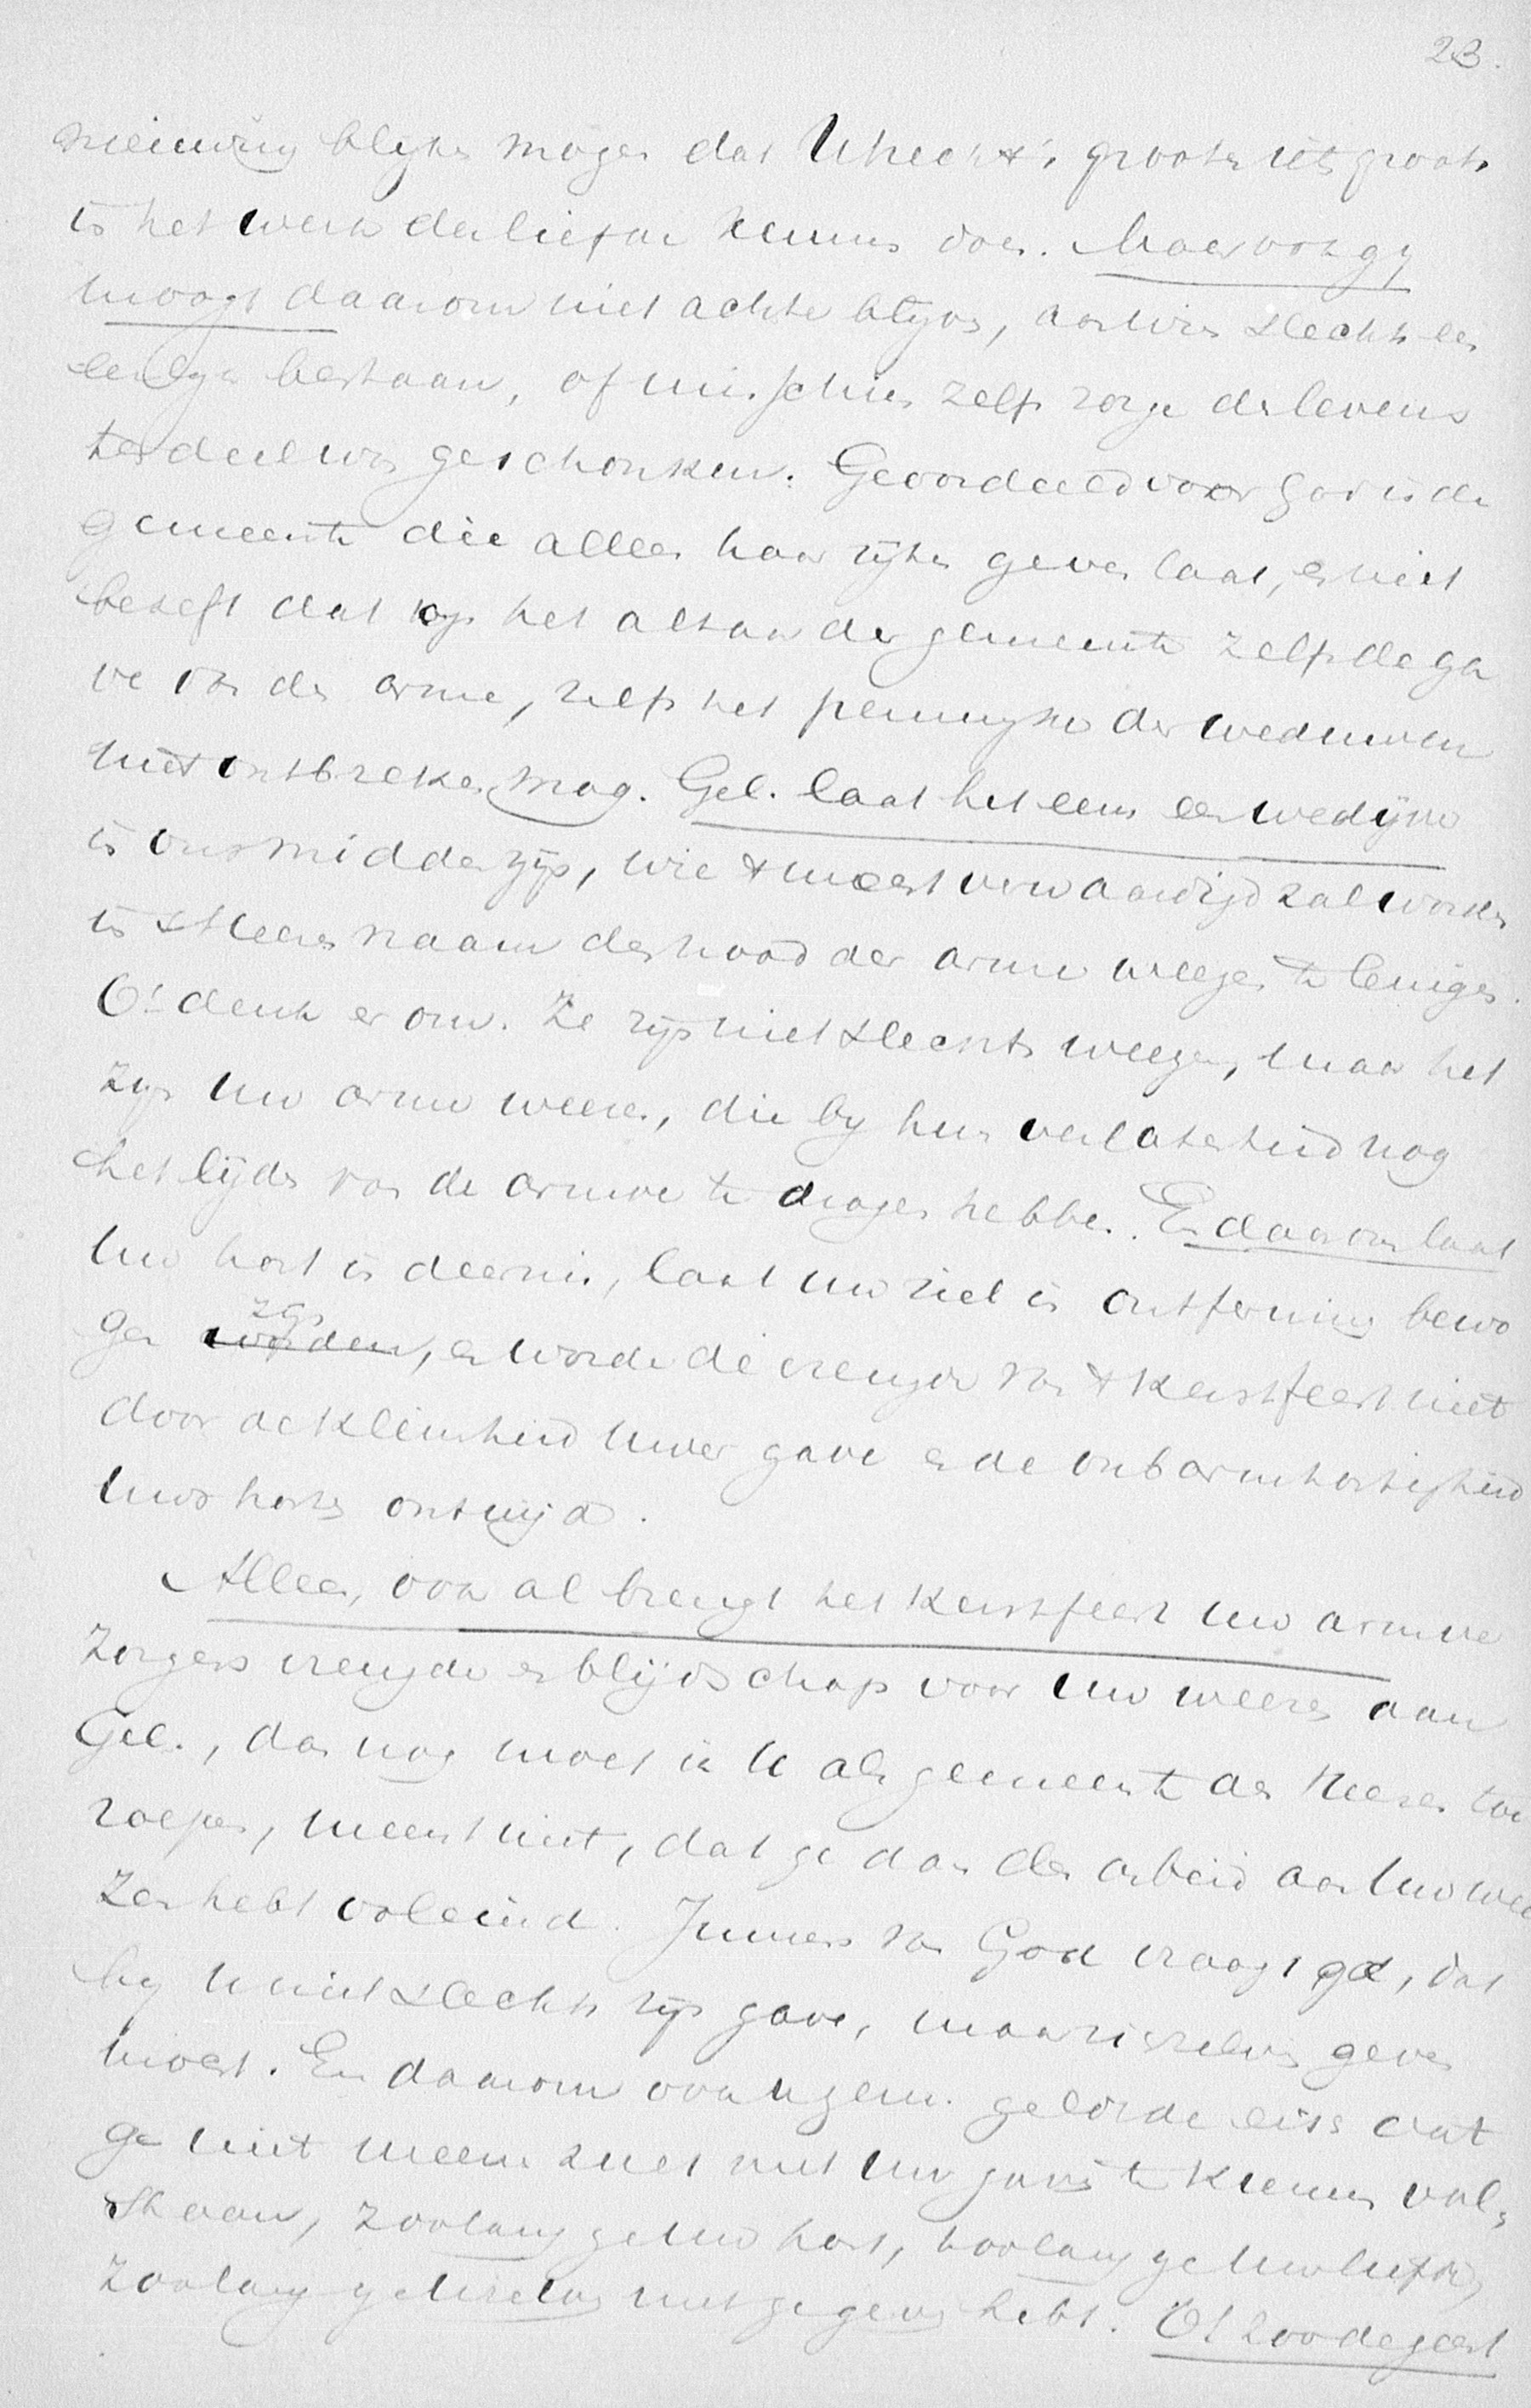 23.
nieuwing blyken mogen dat Utrecht's grooten iets groots
in het werk der liefde kunnen doen. Maar ook gy
moogt daarom niet achter blyven, aan wien slechts een
bestaan, of misschien zelfs zorge des levens
ten deel was geschonken. Geoordeeld voor God is de
gemeente die alleen haar rijken geven laat, en niet
beseft dat op het altaar der gemeente zelfs de ga
ve van den arme, zelfs het penningske der weduwen
niet ontbreken mag. Gel. laat het eens een wedijver
in ons midden zijn, wie 't meest verwaardigd zal worden
in 's Heeren naam den nood der arme weezen te lenigen.
O! denk er om. Ze zijn niet slechts weezen, maar het
zijn uw arme weezen, die by hun verlatenheid nog
het lijden van de armoe te dragen hebben. En daarom laat
uw hart in deernis, laat uw ziel in ontferming bewo
gen worden zijn, en worde de vreugde van 't Kerstfeest niet
door de kleinheid uwer gave en de onbarmhartigheid
uws harten ontwijd.
Alleen, ook al brengt het Kerstfeest uw armve
zorgers vreugde en blijdschap voor uw weezen aan
Gel., dan nog moet ik U als gemeente des Heeren toe
roepen, meent niet, dat ge dan den arbeid aan uw wee
zen hebt voleind. Immers van God vraagt ge, dat
hy U niet slechts zijn gave, maar zichzelven geven
moest. En daarom ook U gem. geldt de eisch dat
ge niet meenen zult met uw gave te kunnen vol-
staan, zoolang ge uw hart, zoolang ge uw liefde,
zoolang ge Uzelven niet gegeven hebt. O! zoo de geest